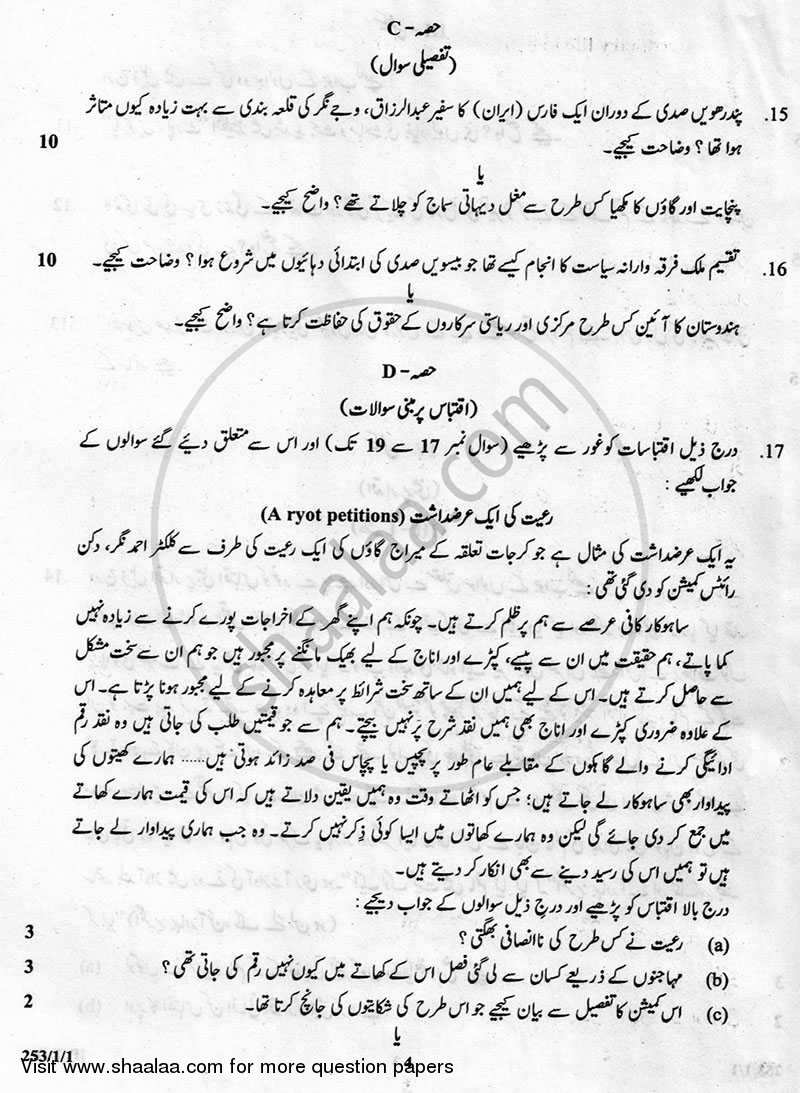 حصہ – C
(تفصیلی سوال)
15. پندرھویں صدی کے دوران ایک فارس (ایران) کا سفیر عبدالرزاق، وجے نگر کی قلعہ بندی سے بہت زیادہ کیوں متاثر
ہوا تھا؟ وضاحت کیجیے۔ 10
یا
پنچایت اور گاؤں کا مکھیا کس طرح سے مغل دیہاتی سماج کو چلاتے تھے؟ واضح کیجیے۔
16. تقسیم ملک فرقہ وارانہ سیاست کا انجام کیسے تھا جو بیسویں صدی کی ابتدائی دہائیوں میں شروع ہوا؟ وضاحت کیجیے۔ 10
یا
ہندوستان کا آئین کس طرح مرکزی اور ریاستی سرکاروں کے حقوق کی حفاظت کرتا ہے؟ واضح کیجیے۔
حصہ – D
(اقتباس پر مبنی سوالات)
17. درج ذیل اقتباسات کو غور سے پڑھیے (سوال نمبر 17 سے 19 تک) اور اس سے متعلق دیئے گئے سوالوں کے
جواب لکھیے :
رعیت کی ایک عرضداشت (A ryot petitions)
یہ ایک عرضداشت کی مثال ہے جو کرجات تعلقہ کے میراج گاؤں کی ایک رعیت کی طرف سے کلکٹر احمد نگر، دکن
رائٹس کمیشن کو دی گئی تھی :
ساہوکار کافی عرصے سے ہم پر ظلم کرتے ہیں۔ چونکہ ہم اپنے گھر کے اخراجات پورے کرنے سے زیادہ نہیں
کما پاتے، ہم حقیقت میں ان سے پیسے، کپڑے اور اناج کے لیے بھیک مانگنے پر مجبور ہیں جو ہم ان سے سخت مشکل
سے حاصل کرتے ہیں۔ اس کے لیے ہمیں ان کے ساتھ سخت شرائط پر معاہدہ کرنے کے لیے مجبور ہونا پڑتا ہے۔ اس
کے علاوہ ضروری کپڑے اور اناج بھی ہمیں نقد شرح پر نہیں بیچتے۔ ہم سے جو قیمتیں طلب کی جاتی ہیں وہ نقد رقم
ادائیگی کرنے والے گاہکوں کے مقابلے عام طور پر پچیس یا پچاس فی صد زائد ہوتی ہیں...... ہمارے کھیتوں کی
پیداوار بھی ساہوکار لے جاتے ہیں؛ جس کو اٹھاتے وقت وہ ہمیں یقین دلاتے ہیں کہ اس کی قیمت ہمارے کھاتے
میں جمع کر دی جائے گی لیکن وہ ہمارے کھاتوں میں ایسا کوئی ذِکر نہیں کرتے۔ وہ جب ہماری پیداوار لے جاتے
ہیں تو ہمیں اس کی رسید دینے سے بھی انکار کر دیتے ہیں۔
درج بالا اقتباس کو پڑھیے اور درج ذیل سوالوں کے جواب دیجیے :
(a) رعیت نے کس طرح کی ناانصافی بھگتی؟ 3
(b) مہاجنوں کے ذریعے کسان سے لی گئی فصل اس کے کھاتے میں کیوں نہیں رقم کی جاتی تھی؟ 3
(c) اس کمیشن کا تفصیل سے بیان کیجیے جو اس طرح کی شکایتوں کی جانچ کرتا تھا۔ 2
یا
253/1/1
4
Visit www.shaalaa.com for more question papers
shaalaa.com